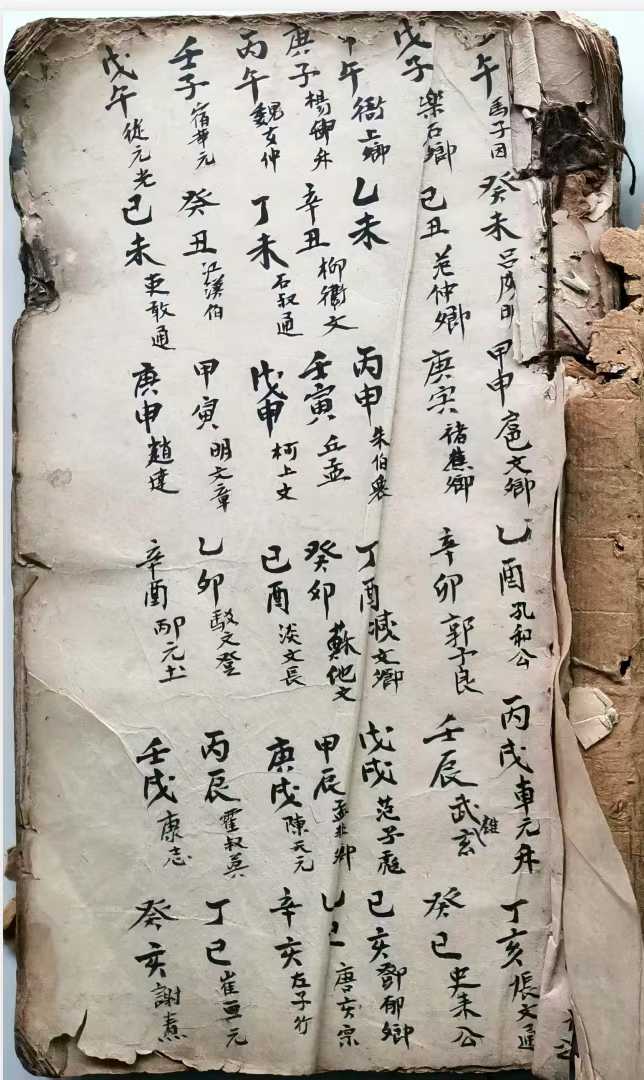 午 馬子因 癸未 甲申 扈文卿 乙酉 孔和公 丙戌 車元升 丁亥 張文通
戊子 樂石卿 己丑 范仲卿 庚寅 褚蕉卿 辛卯 郭子良 壬辰 武玄雄 癸巳 史耒公
午 衛上卿 乙未 丙申 朱伯衆 丁酉 減文卿 戊戌 范子彪 己亥 鄧郁卿
庚子 楊仰升 辛丑 柳衢文 壬寅 丘孟 癸卯 蘇他文 甲辰 孟非卿 乙巳 唐亥宗
丙午 魏文仲 丁未 石叔通 戊申 柯上文 己酉 淡文長 庚戌 陳天元 辛亥 左子竹
壬子 宿華元 癸丑 江漢伯 甲寅 明文章 乙卯 文登 丙辰 霍叔英 丁巳 崔亘元
戊午 從元光 己未 吏敢通 庚申 趙達 辛酉 邴元土 壬戌 康志 癸亥 謝熹